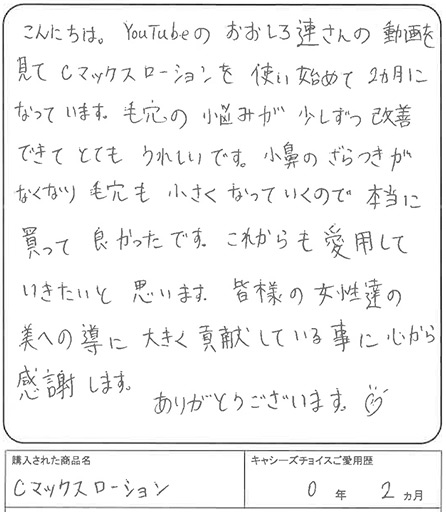 こんにちは。YouTubeの おおしろ連さんの 動画を
見て Cマックスローションを 使い始めて 2カ月に
なっています。毛穴の 悩みが 少しずつ 改善
できて とても うれしいです。小鼻の ざらつきが
なくなり 毛穴も 小さく なっていくので 本当に
買って 良かったです。これからも 愛用して
いきたいと 思います。皆様の 女性達の
美への 導に 大きく 貢献している 事に 心から
感謝します。
ありがとうございます。
購入された商品名
キャシーズチョイスご愛用歴
Cマックスローション
0 年 2 ヵ月